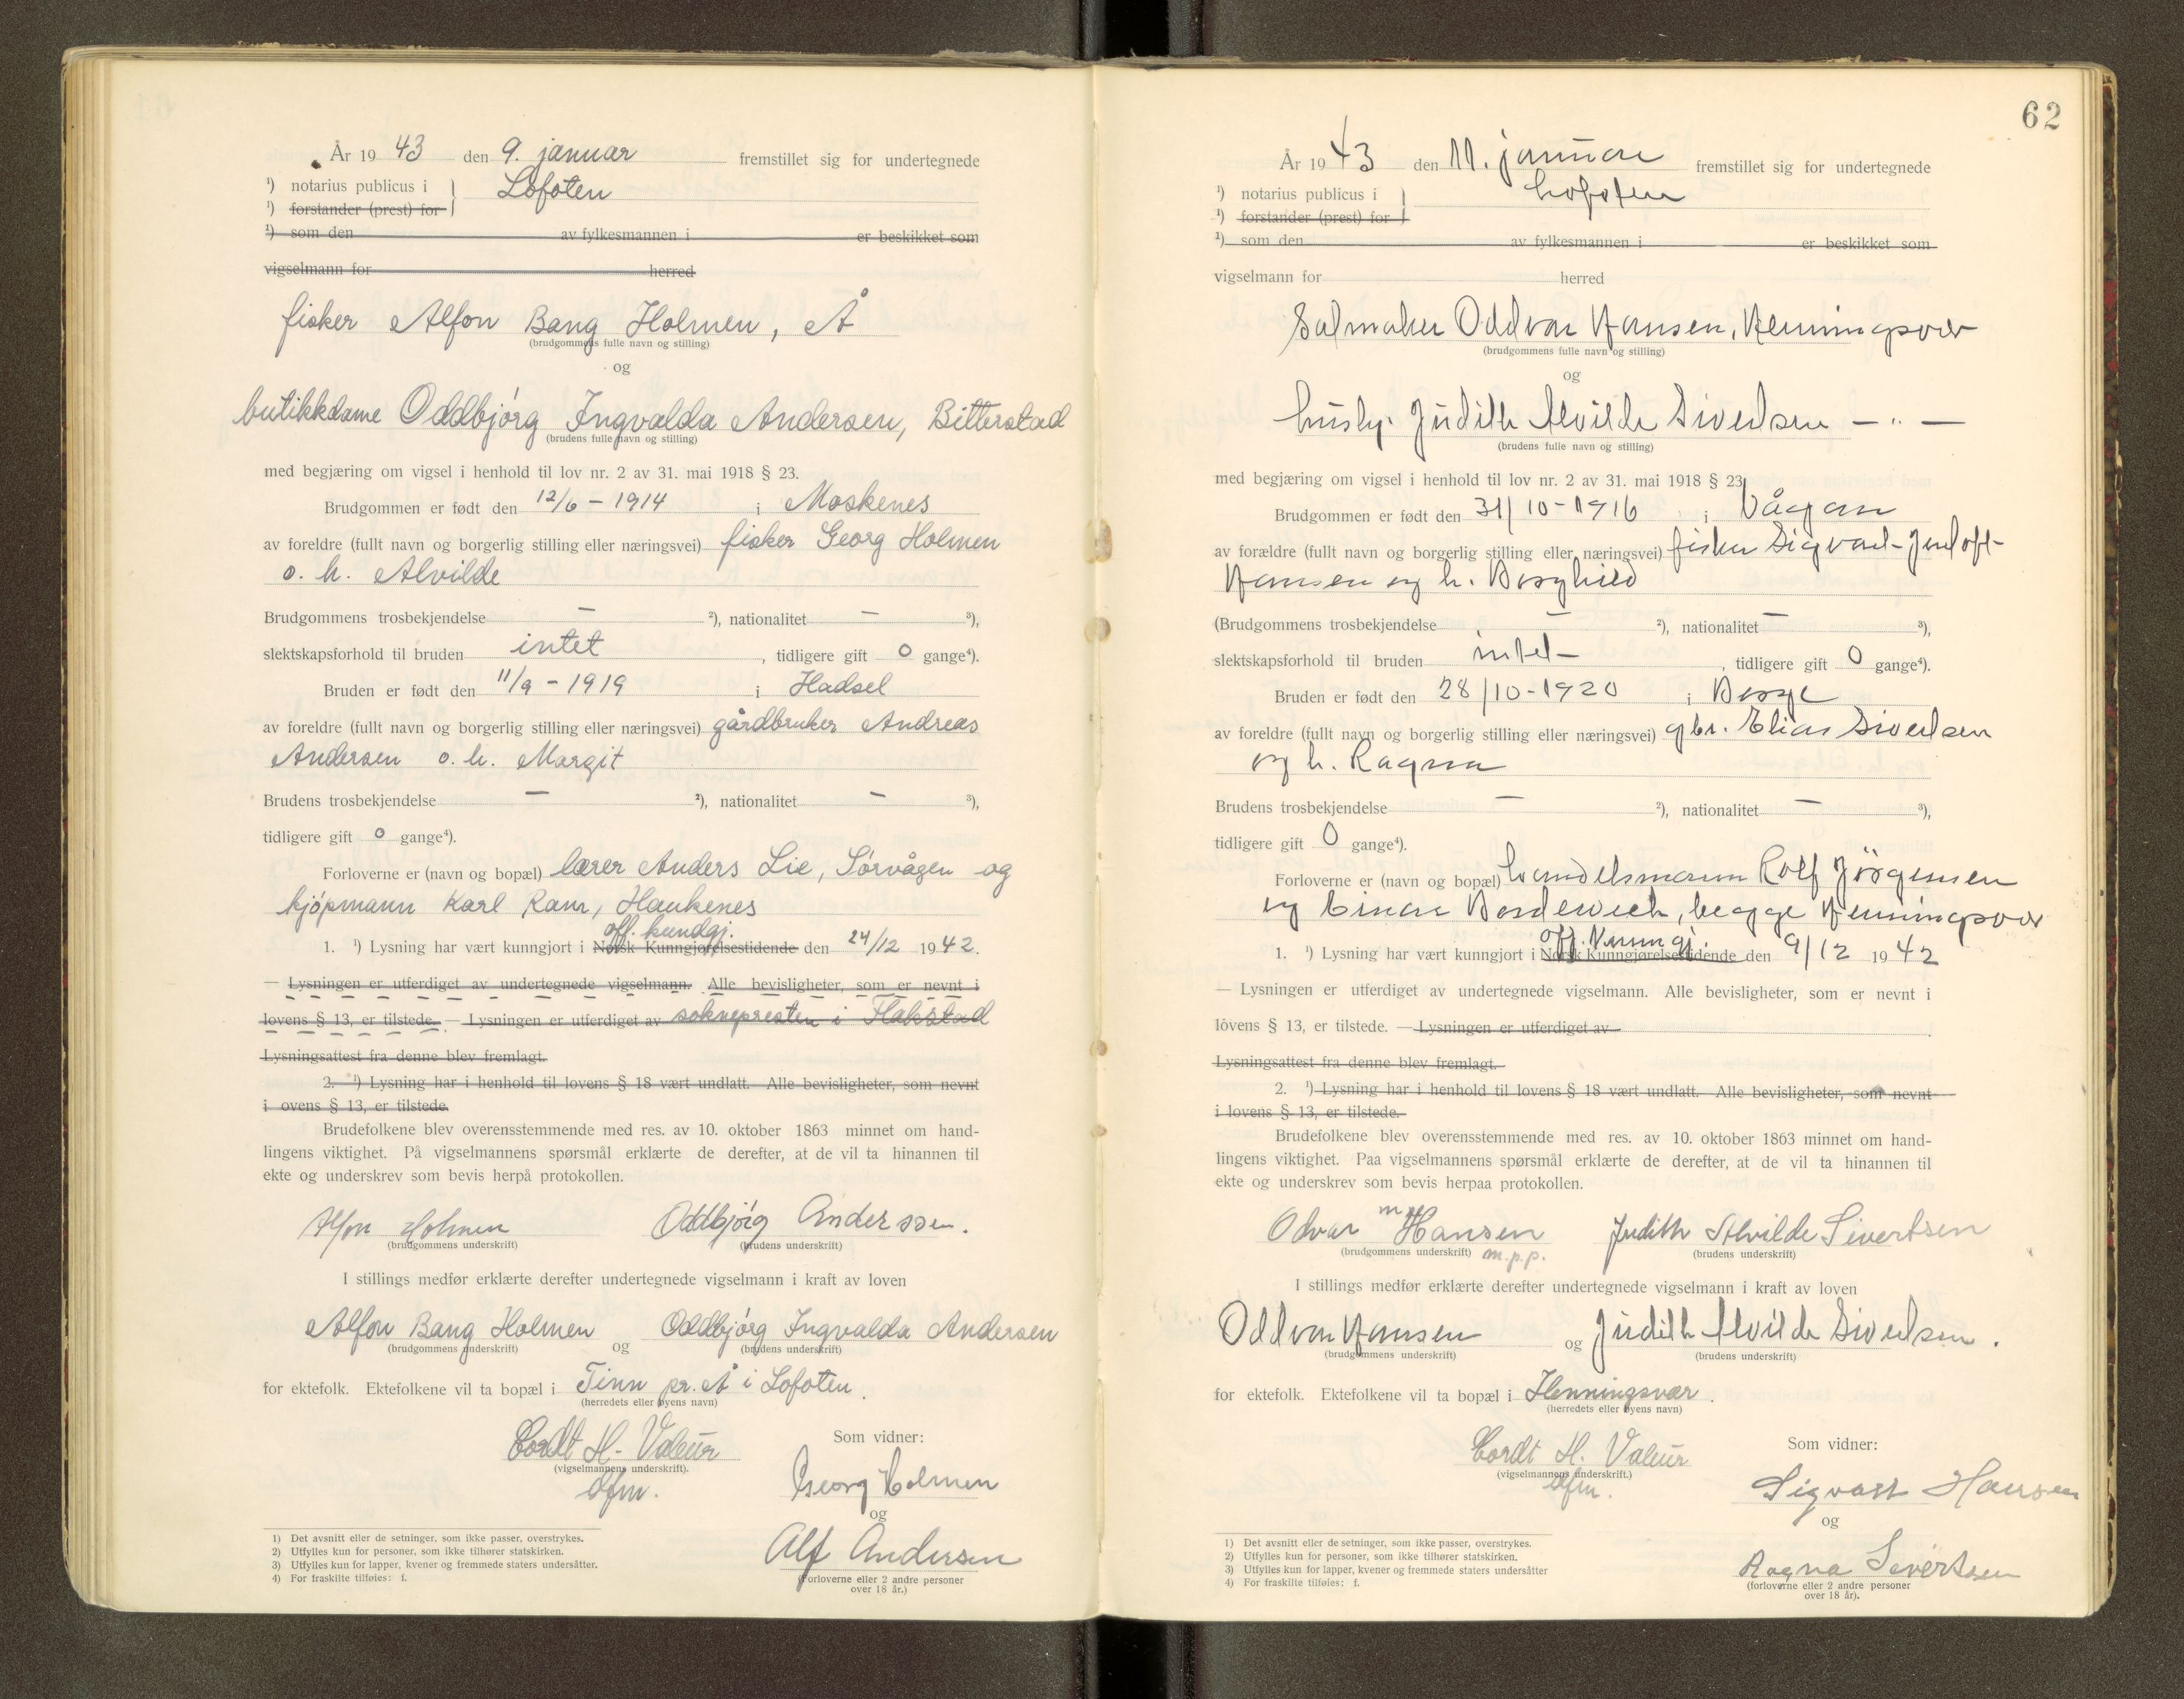 År 1943 den 9. januar fremstillet sig for undertegnede
¹) notarius publicus i } Lofoten
¹) forstander (prest) for
¹) som den av fylkesmannen i er beskikket som
vigselmann for herred
fisker Alfon Bang Holmen, Å
(brudgommens fulle navn og stilling)
og
butikkdame Oddbjórg Ingvalda Andersen, Bitterstad
(brudens fulle navn og stilling)
med begjæring om vigsel i henhold til lov nr. 2 av 31. mai 1918 § 23.
Brudgommen er født den 12/6 – 1914 i Moskenes
av foreldre (fullt navn og borgerlig stilling eller næringsvei) fisker Georg Holmen
o. h. Alvilde
Brudgommens trosbekjendelse — ²), nationalitet — ³),
slektskapsforhold til bruden intet, tidligere gift 0 gange⁴).
Bruden er født den 11/9 – 1919 i Hadsel
av foreldre (fullt navn og borgerlig stilling eller næringsvei) gårdbruker Andreas
Andersen o. h. Margit
Brudens trosbekjendelse — ²), nationalitet — ³),
tidligere gift 0 gange⁴).
Forloverne er (navn og bopæl) lærer Anders Lie, Sórvågen og
kjópmann Karl Ram, Haukenes
off. kundgj.
1. ¹) Lysning har vært kunngjort i Norsk Kunngjørelsestidende den 24/12 1942.
— Lysningen er utferdiget av undertegnede vigselmann. Alle bevisligheter, som er nevnt i
lovens § 13, er tilstede. — Lysningen er utferdiget av soknepresten i Flakstad
Lysningsattest fra denne blev fremlagt.
2. ¹) Lysning har i henhold til lovens § 18 vært undlatt. Alle bevisligheter, som nevnt
i ovens § 13, er tilstede.
Brudefolkene blev overensstemmende med res. av 10. oktober 1863 minnet om hand-
lingens viktighet. På vigselmannens spørsmål erklærte de derefter, at de vil ta hinannen til
ekte og underskrev som bevis herpå protokollen.
Alfon Holmen Oddbjórg Anderssen.
(brudgommens underskrift) (brudens underskrift)
I stillings medfør erklærte derefter undertegnede vigselmann i kraft av loven
Alfon Bang Holmen og Oddbjórg Ingvalda Andersen
(brudgommens underskrift) (brudens underskrift)
for ektefolk. Ektefolkene vil ta bopæl i Tinn pr. Å i Lofoten.
(herredets eller byens navn)
Cordt H. Valeur Som vidner:
(vigselmannens underskrift).
dfm. Georg Holmen
og
Alf Andersen
(Forloverne eller 2 andre personer
over 18 år.)
1) Det avsnitt eller de setninger, som ikke passer, overstrykes.
2) Utfylles kun for personer, som ikke tilhører statskirken.
3) Utfylles kun for lapper, kvener og fremmede staters undersåtter.
4) For fraskilte tilføies: f.
62
År 1943 den 11. januar fremstillet sig for undertegnede
¹) notarius publicus i } Lofoten
¹) forstander (prest) for
¹) som den av fylkesmannen i er beskikket som
vigselmann for herred
Salmaker Oddvar Hansen, Henningsvær
(brudgommens fulle navn og stilling)
og
hushj. Judith Alvilde Sivertsen — " —
(brudens fulle navn og stilling)
med begjæring om vigsel i henhold til lov nr. 2 av 31. mai 1918 § 23
Brudgommen er født den 31/10-1916 i Vågan
av forældre (fullt navn og borgerlig stilling eller næringsvei) fisker Sigvart
Hansen og h. Borghild
(Brudgommens trosbekjendelse — ²), nationalitet — ³),
slektskapsforhold til bruden intet, tidligere gift 0 gange⁴).
Bruden er født den 28/10-1920 i Borge
av foreldre (fullt navn og borgerlig stilling eller næringsvei) gbr. Elias Sivertsen
og h. Ragna
Brudens trosbekjendelse — ²), nationalitet — ³),
tidligere gift 0 gange⁴).
Forloverne er (navn og bopæl) handelsmann Rolf Jörgensen
og Einar Bordewich, begge Henningsvær
off. kunngj.
1. ¹) Lysning har vært kunngjort i Norsk Kunngjørelsestidende den 9/12 1942
— Lysningen er utferdiget av undertegnede vigselmann. Alle bevisligheter, som er nevnt i
lovens § 13, er tilstede. — Lysningen er utferdiget av
Lysningsattest fra denne blev fremlagt.
2. ¹) Lysning har i henhold til lovens § 18 vært undlatt. Alle bevisligheter, som nevnt
i lovens § 13, er tilstede.
Brudefolkene blev overensstemmende med res. av 10. oktober 1863 minnet om hand-
lingens viktighet. Paa vigselmannens spørsmål erklærte de derefter, at de vil ta hinannen til
ekte og underskrev som bevis herpaa protokollen.
Odvar Hansen Judith Alvilde Sivertsen
(brudgommens underskrift) m.p.p. (brudens underskrift)
I stillings medfør erklærte derefter undertegnede vigselmann i kraft av loven
Oddvar Hansen og Judith Alvilde Sivertsen.
(brudgommens underskrift) (brudens underskrift)
for ektefolk. Ektefolkene vil ta bopæl i Henningsvær.
(herredets eller byens navn)
Cordt H. Valeur Som vidner:
(vigselmannens underskrift.)
dfm. Sigvart Hansen
og
Ragna Sivertsen
(forloverne eller 2 andre personer
over 18 år).
1) Det avsnitt eller de setninger, som ikke passer, overstrykes.
2) Utfylles kun for personer, som ikke tilhører statskirken.
3) Utfylles kun for lapper, kvener og fremmede staters undersåtter
4) For fraskilte tilføies: f.